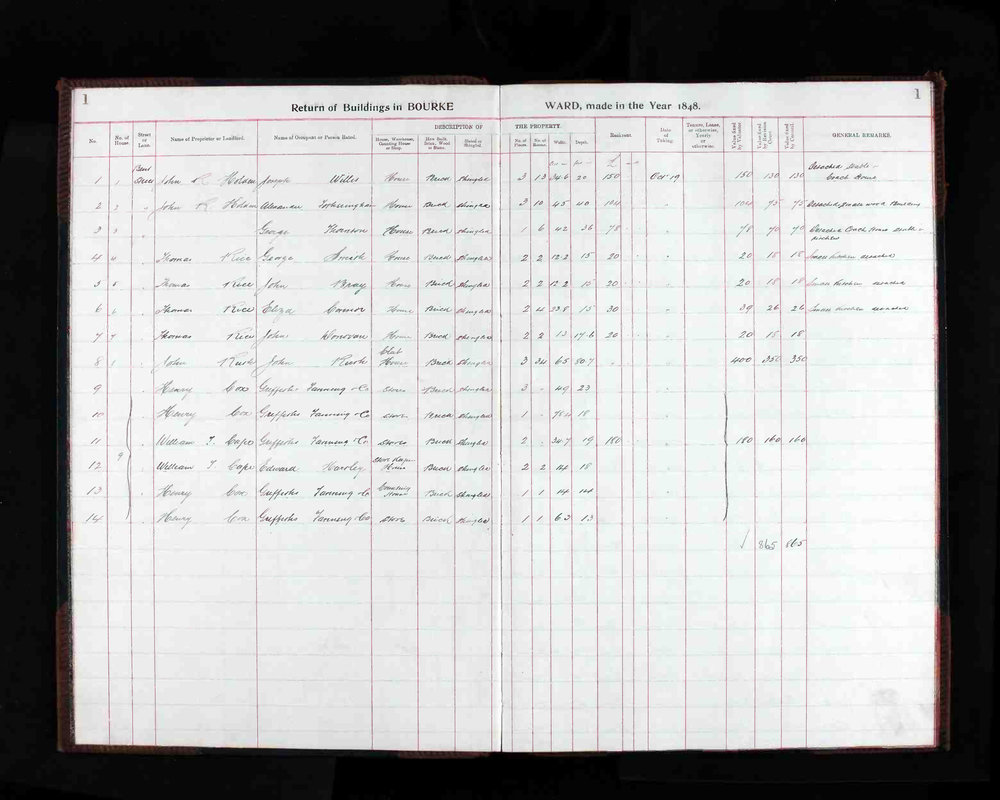 1
1
Return of Buildings in BOURKE WARD, made in the Year 1848.
DESCRIPTION OF THE PROPERTY.
No. No. of House. Street or Lane. Name of Proprietor or Landlord. Name of Occupant or Person Rated. House, Warehouse, Counting House or Shop. How Built, Brick, Wood or Stone. Slated or Shingled. No. of Floors. No. of Rooms. Width. Depth. Rack rent. Date of Taking. Tenure, Lease, or otherwise, Yearly or otherwise. Value fixed by Valuator Value fixed by Revision Court Value fixed by Council GENERAL REMARKS.
£
1 1 Bent Street John R Holden Joseph Willis House Brick Shingled 3 13 34.6 20 150 Oct 19 150 130 130 Detached Stable Coach House
2 2 " John R Holden House Brick Shingled 3 10 45 40 104 104 75 75
3 3 George Thornton House Brick Shingled 1 6 42 36 78 78 70 70 Detached Coach House Stable Kitchen
4 4 " Thomas Rice George Smith House Brick Shingled 2 2 12.2 15 20 20 18 18 Small Kitchen detached
5 5 " Thomas Rice John Bray House Brick Shingled 2 2 12.2 15 20 20 18 18 Small Kitchen detached
6 6 " Thomas Rice Eliza Connor House Brick Shingled 2 4 23.8 15 30 39 26 26 Small Kitchen detached
7 7 " Thomas Rice John Donovan House Brick Shingled 2 2 13 17.6 20 20 18 18
8 " John Rush John Rush Club House Brick Shingled 3 34 65 80.7 400 350 350
9 " Henry Cox Griffiths Fanning & Co Stores Brick Shingled 3 49 23
10 " Henry Cox Griffiths Fanning & Co Store Brick Shingled 1 18
11 " William T Cape Griffiths Fanning & Co Stores Brick Shingled 2 34.7 19 180 180 160 160
9
12 " William T Cape Edward Store Keepers House Brick Shingled 2 2 14 18
13 " Henry Cox Griffiths Fanning & Co Counting House Brick Shingled 1 1 14 14
14 " Henry Cox Griffiths Fanning & Co Store Brick Shingled 1 1 63 13
865 865